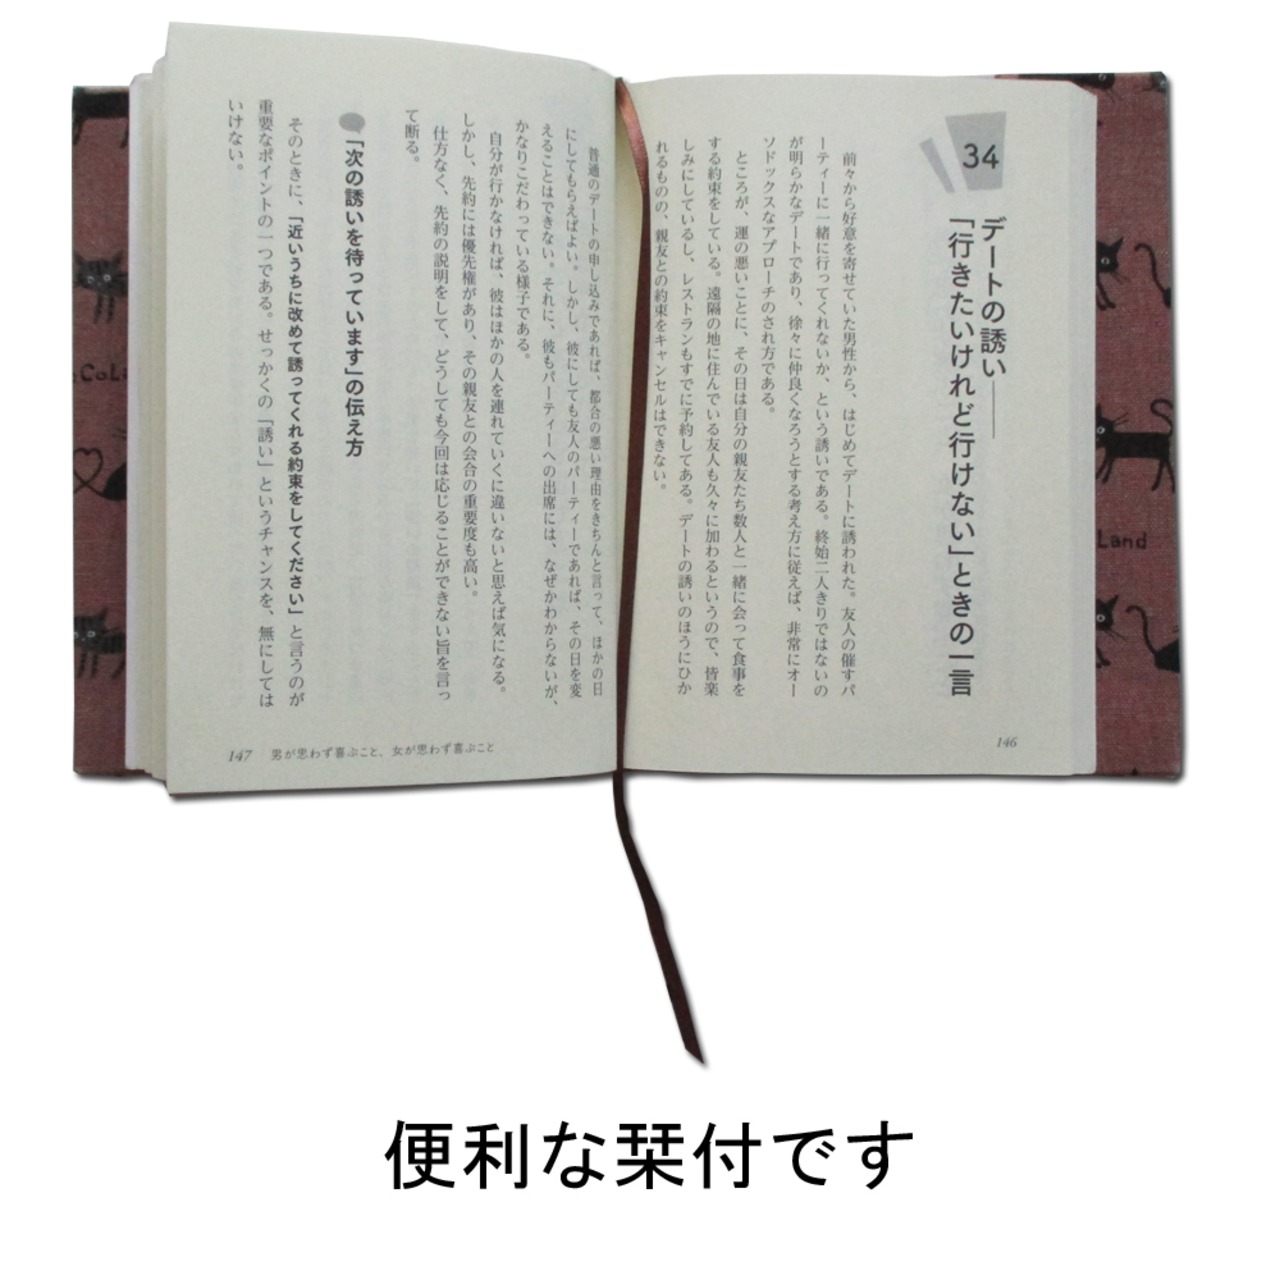 34
デートの誘い――
「行きたいけれど行けない」ときの一言
前々から好意を寄せていた男性から、はじめてデートに誘われた。友人の催すパ
ーティーに一緒に行ってくれないか、という誘いである。終始二人きりではないの
が明らかなデートであり、徐々に仲良くなろうとする考え方に従えば、非常にオー
ソドックスなアプローチのされ方である。
ところが、運の悪いことに、その日は自分の親友たち数人と一緒に会って食事を
する約束をしている。遠隔の地に住んでいる友人も久々に加わるというので、皆楽
しみにしているし、レストランもすでに予約してある。デートの誘いのほうにひか
れるものの、親友との約束をキャンセルはできない。
146
普通のデートの申し込みであれば、都合の悪い理由をきちんと言って、ほかの日
にしてもらえばよい。しかし、彼にしても友人のパーティーであれば、その日を変
えることはできない。それに、彼もパーティーへの出席には、なぜかわからないが、
かなりこだわっている様子である。
自分が行かなければ、彼はほかの人を連れていくに違いないと思えば気になる。
しかし、先約には優先権があり、その親友との会合の重要度も高い。
仕方なく、先約の説明をして、どうしても今回は応じることができない旨を言っ
て断る。
「次の誘いを待っています」の伝え方
そのときに、「近いうちに改めて誘ってくれる約束をしてください」と言うのが
重要なポイントの一つである。せっかくの「誘い」というチャンスを、無にしては
いけない。
147 男が思わず喜ぶこと、女が思わず喜ぶこと
Land
便利な栞付です